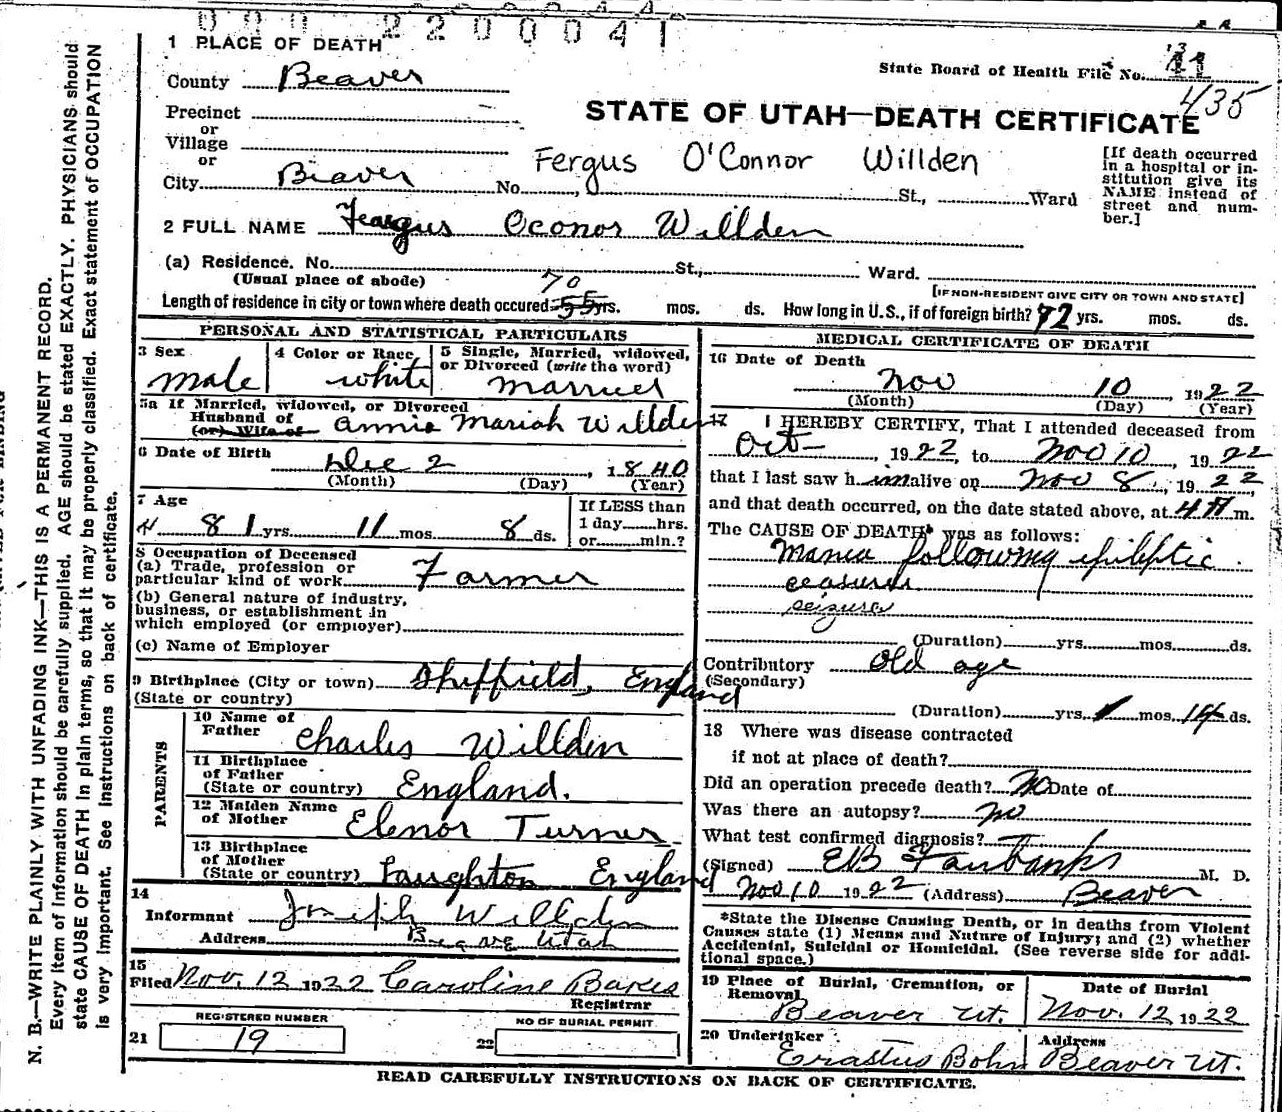 2200041
1 PLACE OF DEATH
County Beaver
State Board of Health File No. 11
13
435
Precinct
or
Village
or
City Beaver No. St., Ward
STATE OF UTAH—DEATH CERTIFICATE
Fergus O'Connor Willden
[If death occurred
in a hospital or in-
stitution give its
NAME instead of
street and num-
ber.]
2 FULL NAME Feargus Oconor Willden
(a) Residence. No. St., Ward.
(Usual place of abode)
[IF NON-RESIDENT GIVE CITY OR TOWN AND STATE]
70
Length of residence in city or town where death occured 55 yrs. mos. ds. How long in U.S., if of foreign birth? 72 yrs. mos. ds.
PERSONAL AND STATISTICAL PARTICULARS
3 Sex
male
4 Color or Race
white
5 Single, Married, widowed,
or Divorced (write the word)
married
5a If Married, widowed, or Divorced
Husband of
(or) Wife of Annie Mariah Willden
6 Date of Birth
Dec 2, 1840
(Month) (Day) (Year)
7 Age
81 yrs. 11 mos. 8 ds.
If LESS than
1 day hrs.
or min.?
8 Occupation of Deceased
(a) Trade, profession or
particular kind of work Farmer
(b) General nature of industry,
business, or establishment in
which employed (or employer)
(c) Name of Employer
9 Birthplace (City or town) Sheffield, England
(State or country)
PARENTS
10 Name of
Father Charles Willden
11 Birthplace
of Father
(State or country) England.
12 Maiden Name
of Mother Elenor Turner
13 Birthplace
of Mother
(State or country) Laughton England
14
Informant Joseph Willden
Address Beaver Utah
15
Filed Nov. 12 1922 Caroline Bakes
Registrar
REGISTERED NUMBER
21 19
NO OF BURIAL PERMIT
22
MEDICAL CERTIFICATE OF DEATH
16 Date of Death
Nov 10 1922
(Month) (Day) (Year)
17 I HEREBY CERTIFY, That I attended deceased from
Oct, 1922, to Nov 10, 1922
that I last saw him alive on Nov 8, 1922
and that death occurred, on the date stated above, at 4 A m.
The CAUSE OF DEATH* was as follows:
Mania following epileptic
ceasures
seizures
(Duration) yrs. mos. ds.
Contributory Old age
(Secondary)
(Duration) yrs. 1 mos. 14 ds.
18 Where was disease contracted
if not at place of death?
Did an operation precede death? No Date of
Was there an autopsy? no
What test confirmed diagnosis?
(Signed) EB Fairbanks M. D.
Nov 10 1922 (Address) Beaver
*State the Disease Causing Death, or in deaths from Violent
Causes state (1) Means and Nature of Injury; and (2) whether
Accidental, Suicidal or Homicidal. (See reverse side for addi-
tional space.)
19 Place of Burial, Cremation, or
Removal
Beaver Ut.
Date of Burial
Nov. 12 1922
20 Undertaker
Erastus Bohn
Address
Beaver Ut.
READ CAREFULLY INSTRUCTIONS ON BACK OF CERTIFICATE.
N. B.—WRITE PLAINLY WITH UNFADING INK—THIS IS A PERMANENT RECORD.
Every item of information should be carefully supplied. AGE should be stated EXACTLY. PHYSICIANS should
state CAUSE OF DEATH in plain terms, so that it may be properly classified. Exact statement of OCCUPATION
is very important. See instructions on back of certificate.